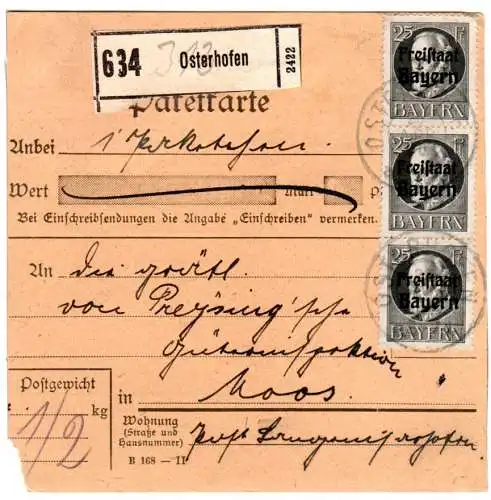 634
313
Osterhofen
2422
Paketkarte
Anbei 1
Wert Mark P
Bei Einschreibsendungen die Angabe „Einschreiben“ vermerken.
An die gräfl.
von Preysing'sche
Güterinspektion
in Moos
Postgewicht
1/2 kg
Wohnung
(Straße und
Hausnummer)
Post Langenisarhofen
B 168 — II
25 Pf
Freistaat
Bayern
BAYERN
25 Pf
Freistaat
Bayern
BAYERN
25 Pf
Freistaat
Bayern
BAYERN